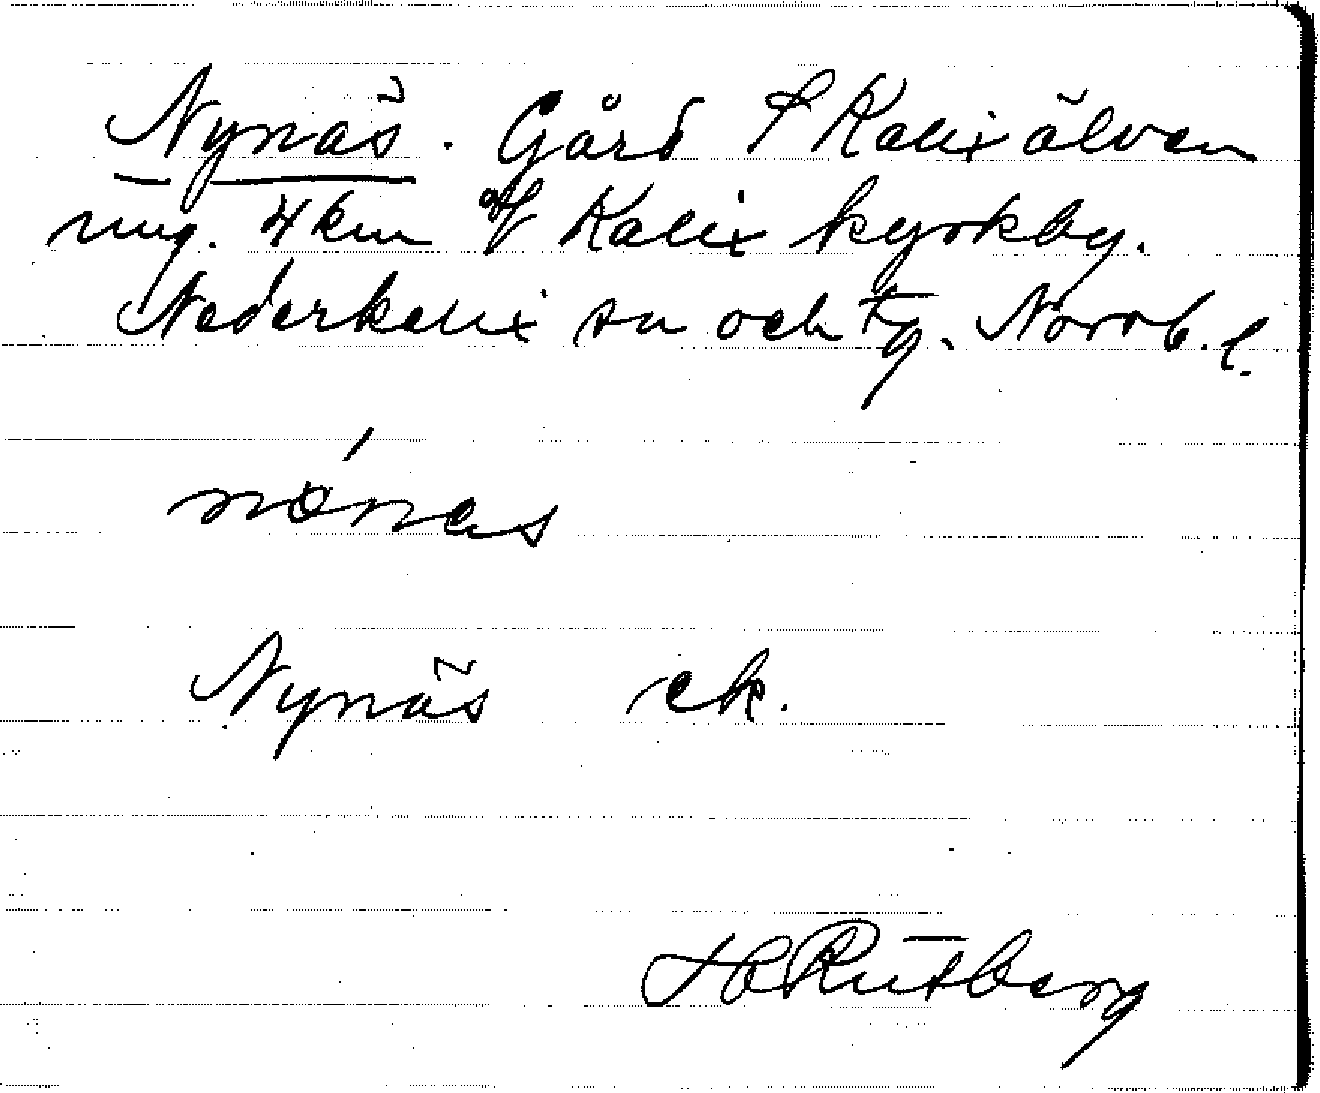 Nynäs. Gård f Kalixälven
ung. 4 km af Kalix kyrkby.
Nederkalix sn och tg. Norrb. l.
nónas
Nynäs ek.
H Rutberg